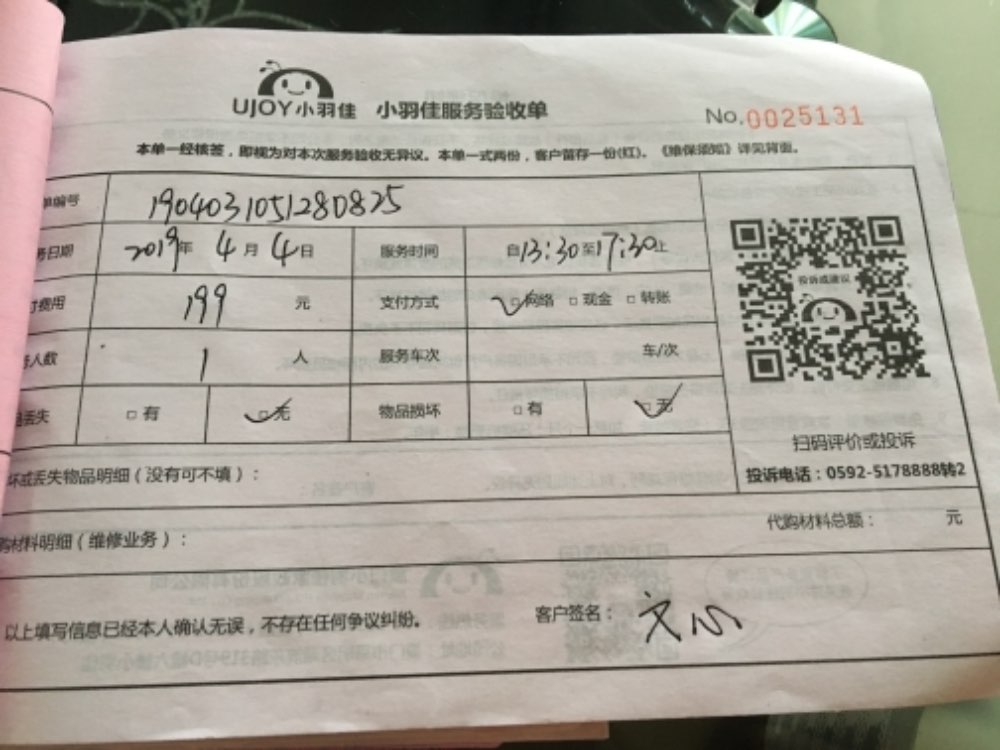 UJOY小羽佳 小羽佳服务验收单
No.0025131
本单一经核签，即视为对本次服务验收无异议。本单一式两份，客户留存一份(红)。《维保须知》详见背面。
单编号 1904031051280825
务日期 2019年 4月 4日 服务时间 自13:30至17:30止
付费用 199 元 支付方式 ✓□网络 □现金 □转账
务人数 1 人 服务车次 车/次
丢失 □有 ✓□无 物品损坏 □有 ✓□无
投诉或建议
扫码评价或投诉
投诉电话：0592-5178888转2
坏或丢失物品明细（没有可不填）：
购材料明细（维修业务）： 代购材料总额： 元
以上填写信息已经本人确认无误，不存在任何争议纠纷。 客户签名：文心